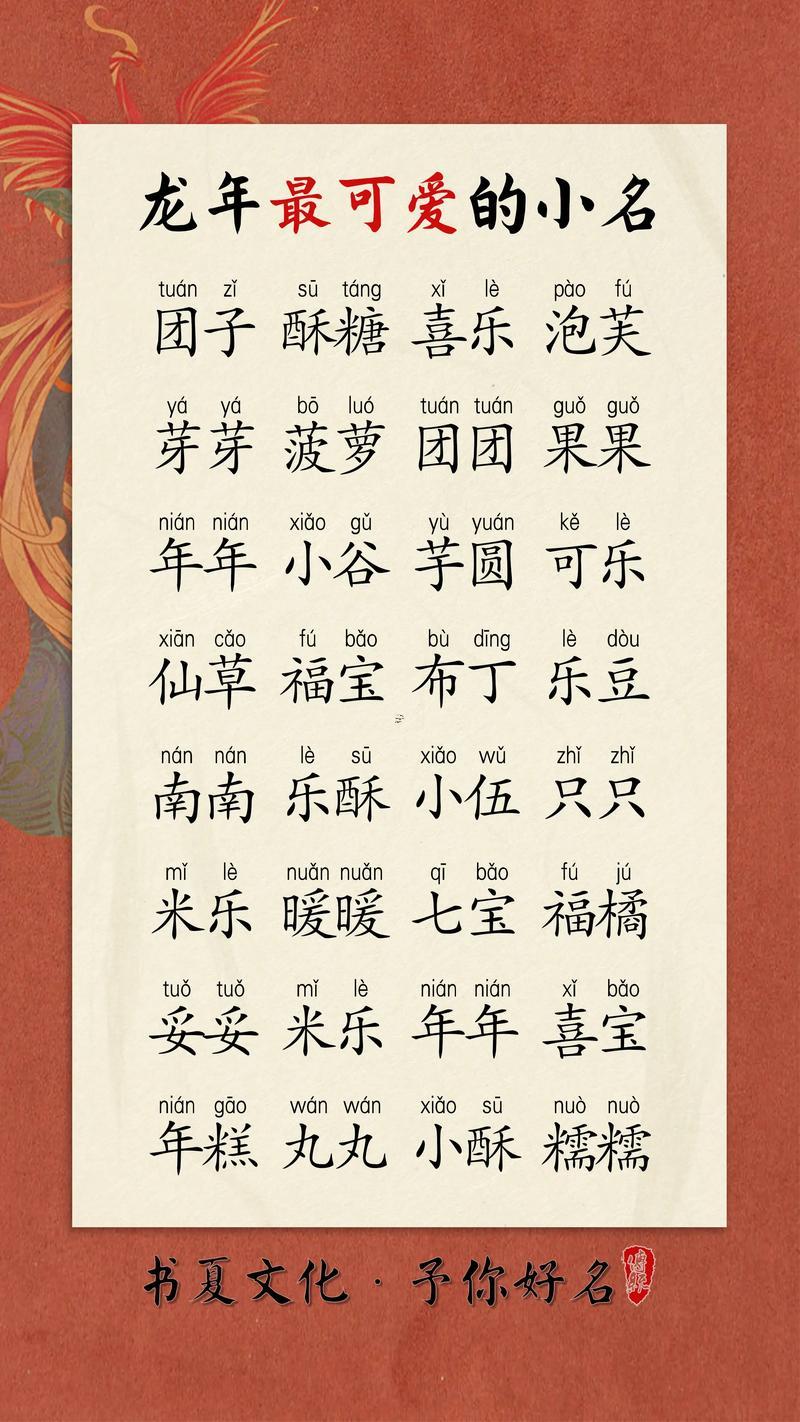 龙年最可爱的小名
tuán zǐ sū táng xǐ lè pào fú
团子 酥糖 喜乐 泡芙
yá yá bō luó tuán tuán guǒ guǒ
芽芽 菠萝 团团 果果
nián nián xiǎo gǔ yù yuán kě lè
年年 小谷 芋圆 可乐
xiān cǎo fú bǎo bù dīng lè dòu
仙草 福宝 布丁 乐豆
nán nán lè sū xiǎo wǔ zhǐ zhǐ
南南 乐酥 小伍 只只
mǐ lè nuǎn nuǎn qī bǎo fú jú
米乐 暖暖 七宝 福橘
tuǒ tuǒ mǐ lè nián nián xǐ bǎo
妥妥 米乐 年年 喜宝
nián gāo wán wán xiǎo sū nuò nuò
年糕 丸丸 小酥 糯糯
书夏文化·予你好名